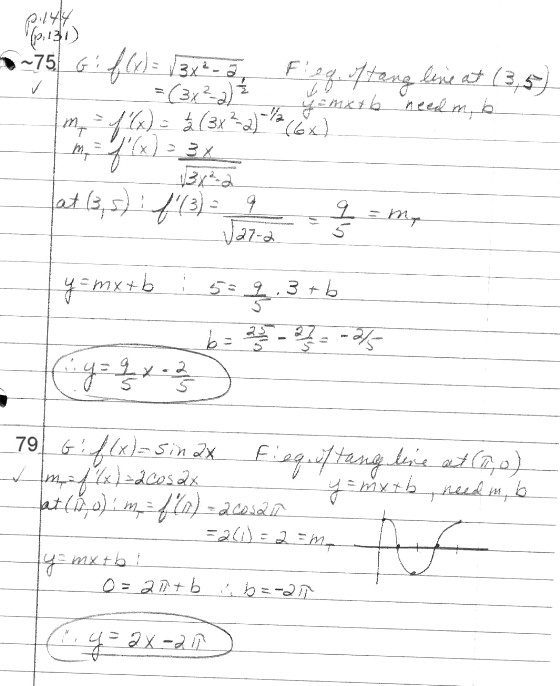 p.144
(p.131)
~75 G: f(x) = √3x²-2 F: eq. of tang line at (3,5)
= (3x²-2)^½ y=mx+b need m, b
✓
m_T = f'(x) = ½(3x²-2)^-1/2 (6x)
m_T = f'(x) = 3x/√3x²-2
at (3,5): f'(3) = 9/√27-2 = 9/5 = m_T
y=mx+b : 5 = 9/5 · 3 + b
b = 25/5 - 27/5 = -2/5
∴ y = 9/5 x - 2/5
79 G: f(x) = sin 2x F: eq. of tang line at (π,0)
✓ m_T = f'(x) = 2cos2x y=mx+b, need m, b
at (π,0): m_T = f'(π) = 2cos2π
= 2(1) = 2 = m_T
y=mx+b:
0 = 2π+b ∴ b=-2π
∴ y = 2x-2π